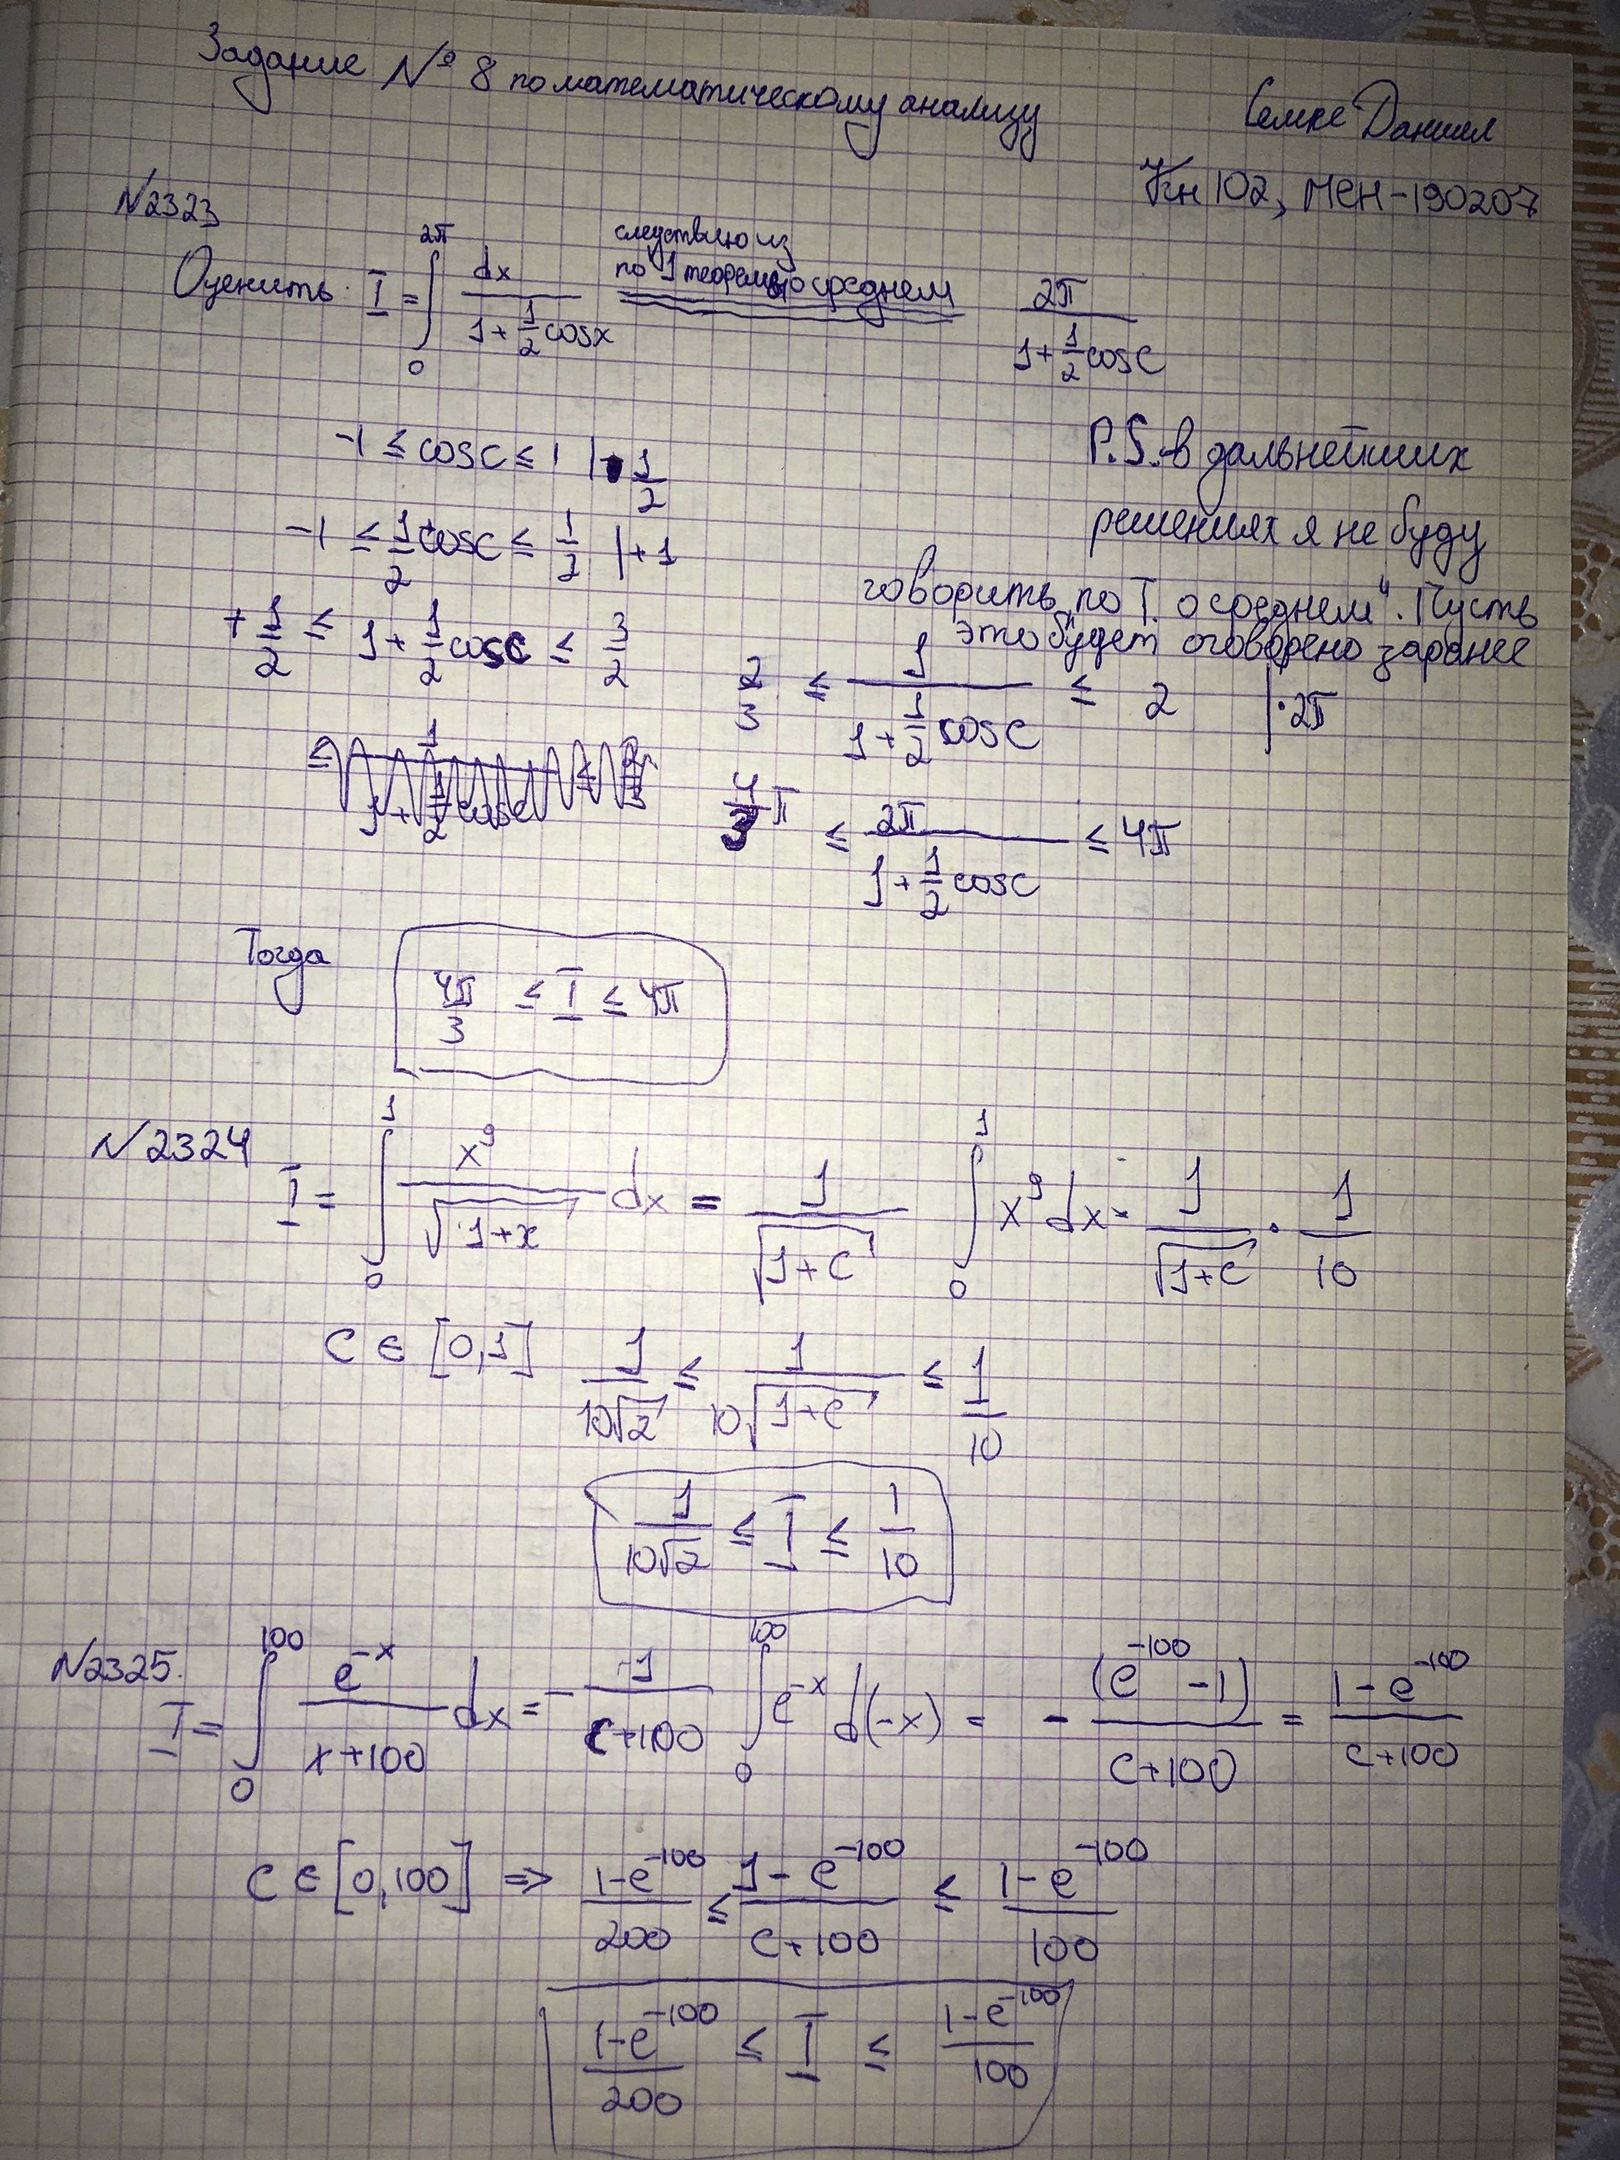 Задание № 8 по математическому анализу
Семке Даниил
Кн 102, МЕН-190207
№2323
Оценить I = ∫₀^{2π} dx / (1 + 1/2 cosx) следствию из по 1 теоремы о среднем 2π / (1 + 1/2 cosC)
-1 ≤ cosC ≤ 1 | · 1/2
-1 ≤ 1/2 cosC ≤ 1/2 | + 1
+ 1/2 ≤ 1 + 1/2 cosC ≤ 3/2
P.S. в дальнейших
решениях я не буду
говорить „по Т. о среднем“. Пусть
это будет оговорено заранее
2/3 ≤ 1 / (1 + 1/2 cosC) ≤ 2 | · 2π
4/3 π ≤ 2π / (1 + 1/2 cosC) ≤ 4π
Тогда 4π/3 ≤ I ≤ 4π
№2324
I = ∫₀¹ x⁹ / √(1+x) dx = 1 / √(1+C) ∫₀¹ x⁹ dx = 1 / √(1+C) · 1/10
C ∈ [0,1] 1 / 10√2 ≤ 1 / 10√(1+C) ≤ 1/10
1 / 10√2 ≤ I ≤ 1/10
№2325.
I = ∫₀¹⁰⁰ e^{-x} / (x+100) dx = - 1 / (C+100) ∫₀¹⁰⁰ e^{-x} d(-x) = - (e^{-100} - 1) / (C+100) = (1 - e^{-100}) / (C+100)
C ∈ [0,100] ⇒ (1-e^{-100}) / 200 ≤ (1 - e^{-100}) / (C+100) ≤ (1-e^{-100}) / 100
(1-e^{-100}) / 200 ≤ I ≤ (1-e^{-100}) / 100